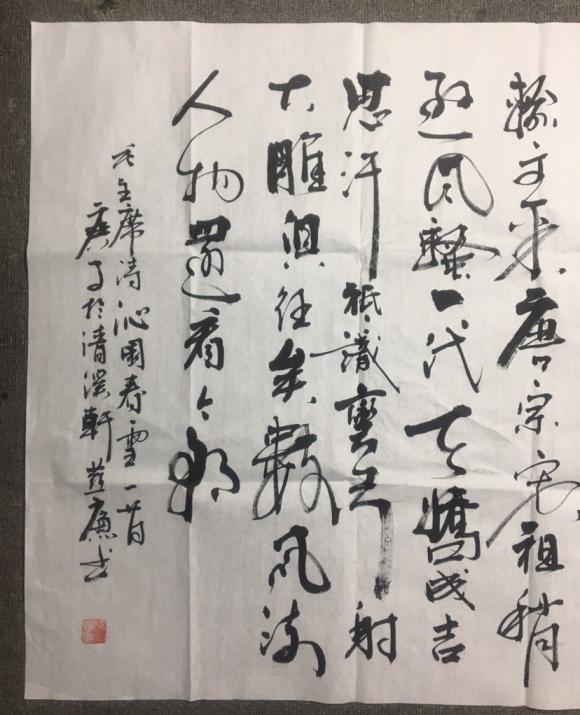 輸文采唐宗宋祖稍
遜風騷一代天驕成吉
思汗祇識彎弓射
大雕俱往矣數風流
人物還看今朝
毛主席詩沁園春雪一首
庚子於清溪軒 廉书